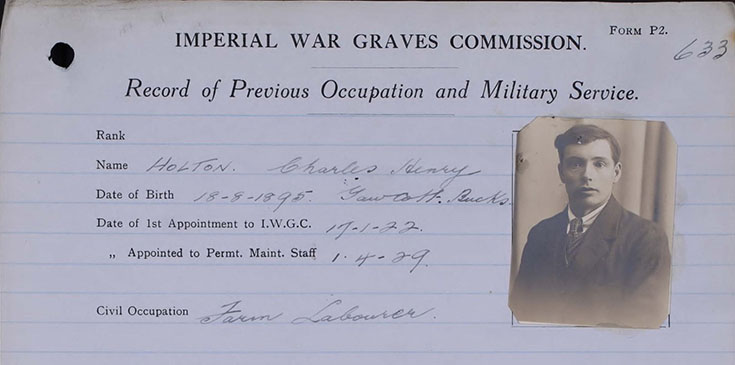 FORM P2.
633
IMPERIAL WAR GRAVES COMMISSION.
Record of Previous Occupation and Military Service.
Rank
Name HOLTON. Charles Henry
Date of Birth 18-8-1895 Gawcott. Bucks.
Date of 1st Appointment to I.W.G.C. 17-1-22.
„ Appointed to Permt. Maint. Staff 1-4-29.
Civil Occupation Farm Labourer.